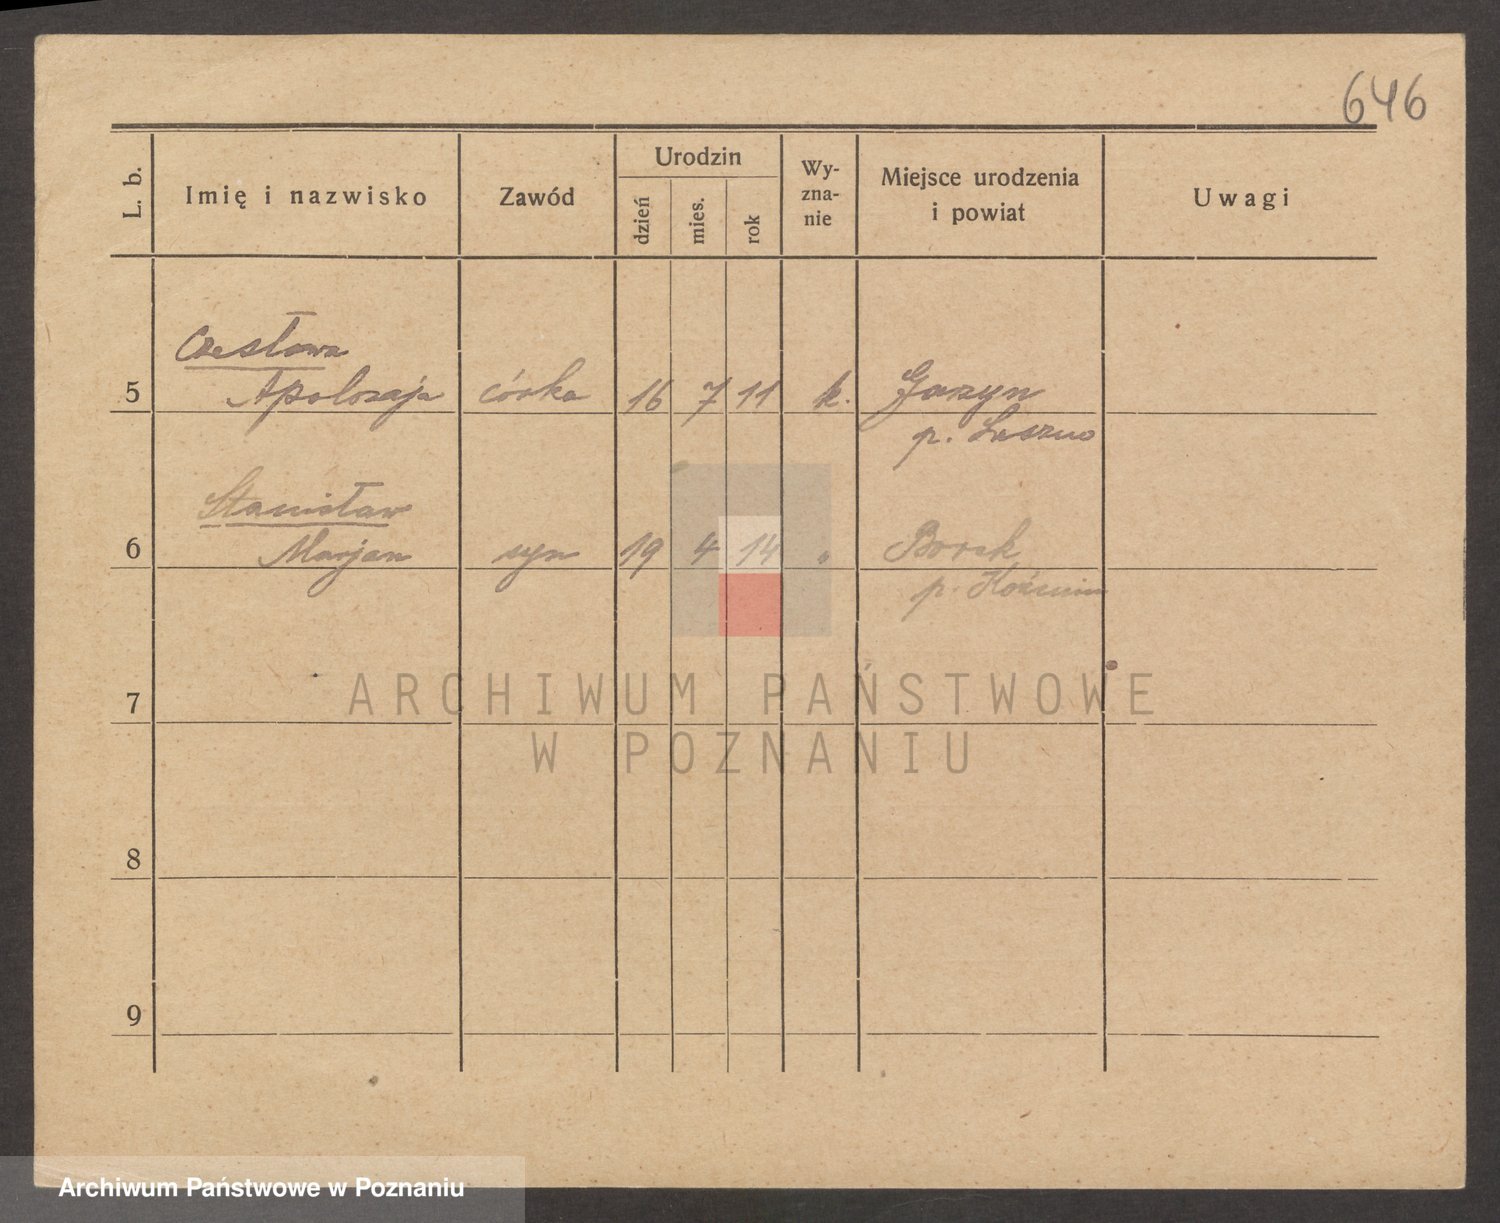 646
L. b.
Imię i nazwisko
Zawód
Urodzin
dzień
mies.
rok
Wy-
zna-
nie
Miejsce urodzenia
i powiat
Uwagi
Czesława
5 córka 16 7 11 k. Garzyn
p. Leszno
Stanisław
6 Marjan syn 19 4 14 " Borek
p. Koźmin
7
ARCHIWUM PAŃSTWOWE
W POZNANIU
8
9
Archiwum Państwowe w Poznaniu